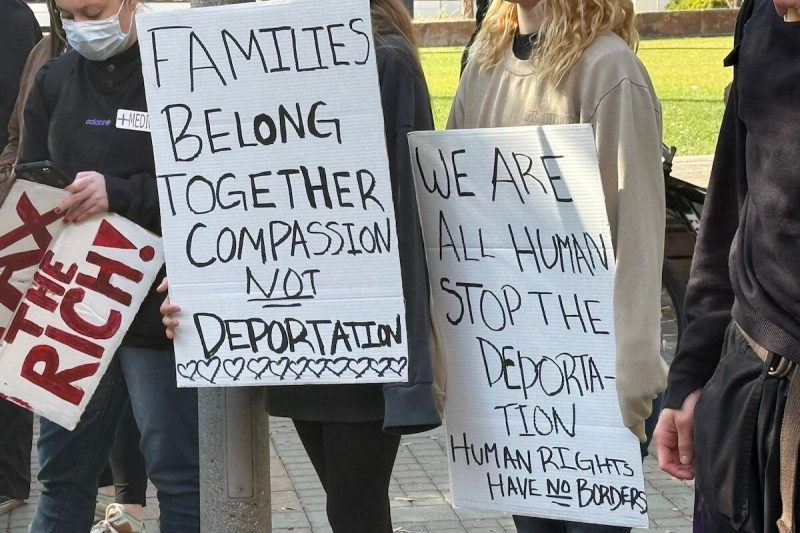 FAMILIES
BELONG
TOGETHER
COMPASSION
NOT
DEPORTATION
WE ARE
ALL HUMAN
STOP THE
DEPORTA-
TION
HUMAN RIGHTS
HAVE NO BORDERS
THE
RICH!
adidas